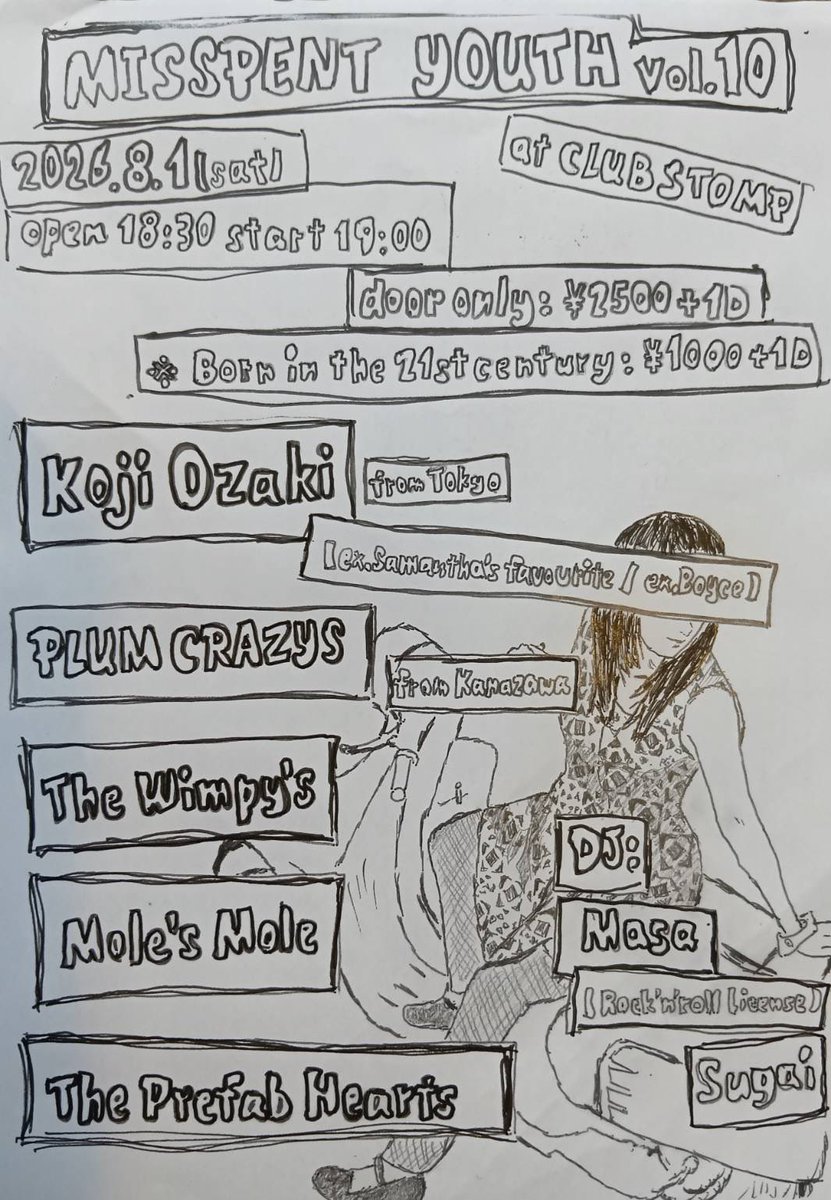 MISSPENT YOUTH vol.10
2026.8.1(sat)
at CLUB STOMP
open 18:30 start 19:00
door only: ¥2500+1D
※ Born in the 21st century: ¥1000+1D
Koji Ozaki
from Tokyo
(ex.Samantha's favourite / ex.Boyce)
PLUM CRAZYS
from Kanazawa
The Wimpy's
DJ:
Mole's Mole
Masa
(Rock'n'roll License)
The Prefab Hearts
Sugai